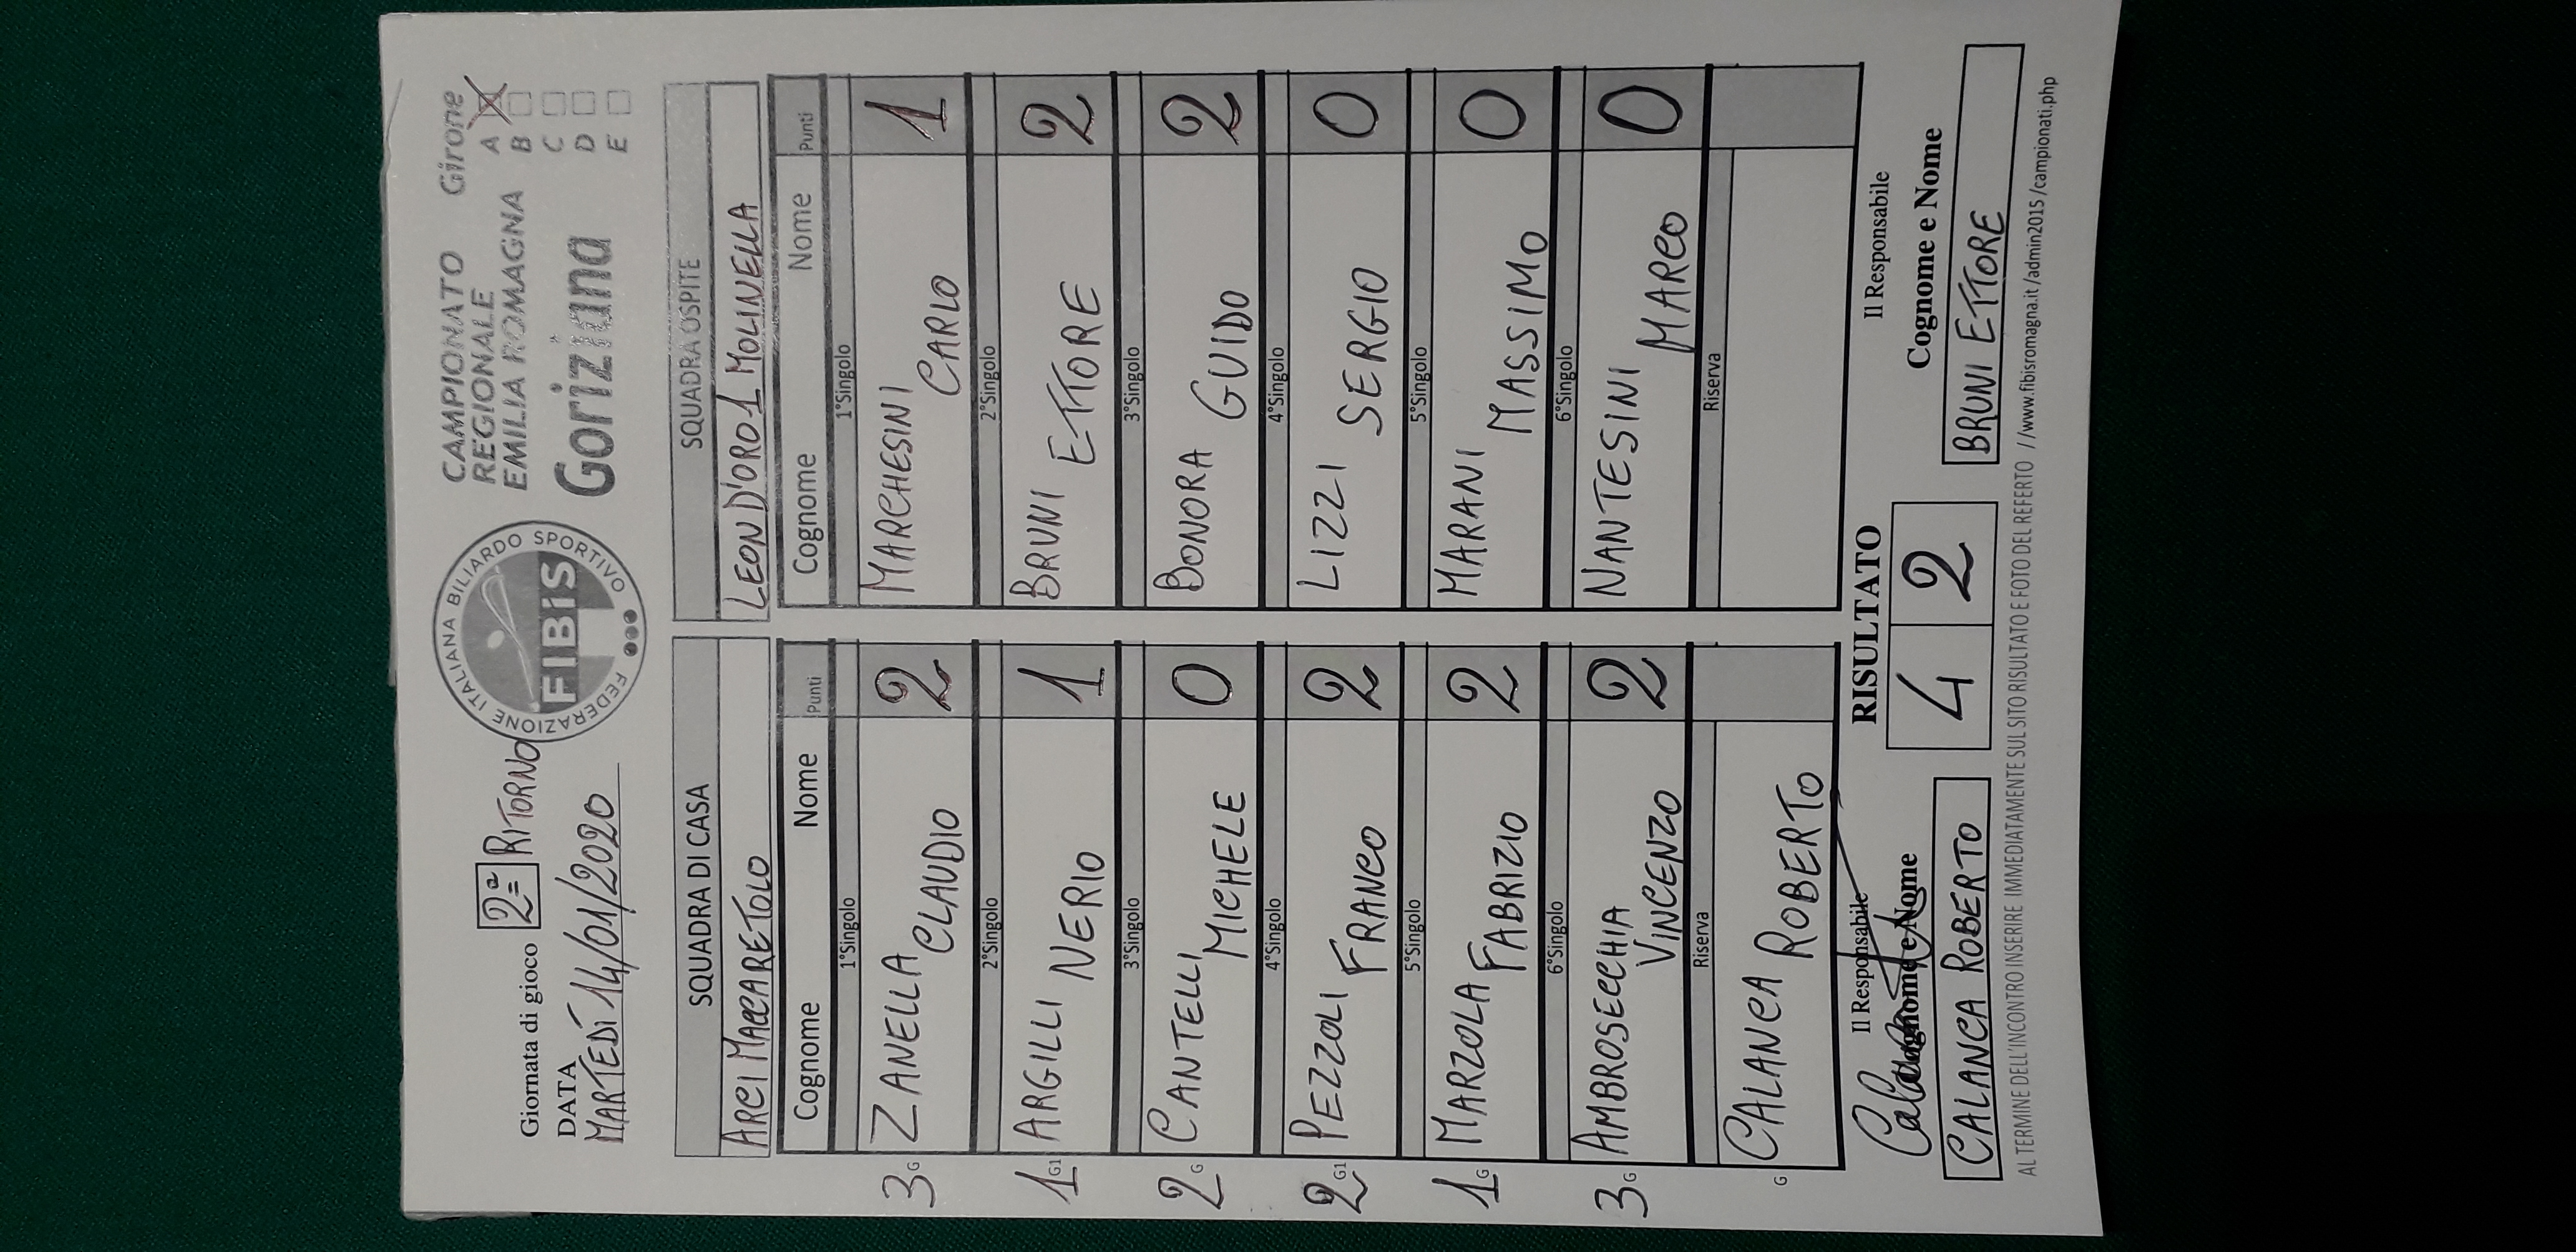 Giornata di gioco 2ª RITORNO
DATA
MARTEDÌ 14/01/2020
FEDERAZIONE ITALIANA BILIARDO SPORTIVO
FIBiS
CAMPIONATO
REGIONALE
EMILIA ROMAGNA
Goriziana
Girone
A
B
C
D
E
SQUADRA DI CASA
ARCI MACCARETOLO
Cognome Nome Punti
1°Singolo
3 G ZANELLA CLAUDIO 2
2°Singolo
1 G1 ARGILLI NERIO 1
3°Singolo
2 G CANTELLI MICHELE 0
4°Singolo
2 G1 PEZZOLI FRANCO 2
5°Singolo
1 G MARZOLA FABRIZIO 2
6°Singolo
3 G AMBROSECCHIA VINCENZO 2
Riserva
G CALANCA ROBERTO
SQUADRA OSPITE
LEON D'ORO 1 MOLINELLA
Cognome Nome Punti
1°Singolo
MARCHESINI CARLO 1
2°Singolo
BRUNI ETTORE 2
3°Singolo
BONORA GUIDO 2
4°Singolo
LIZZI SERGIO 0
5°Singolo
MARANI MASSIMO 0
6°Singolo
NANTESINI MARCO 0
Riserva
Il Responsabile
Cognome e Nome
CALANCA ROBERTO
RISULTATO
4 2
Il Responsabile
Cognome e Nome
BRUNI ETTORE
AL TERMINE DELL'INCONTRO INSERIRE IMMEDIATAMENTE SUL SITO RISULTATO E FOTO DEL REFERTO //www.fibisromagna.it/admin2015/campionati.php